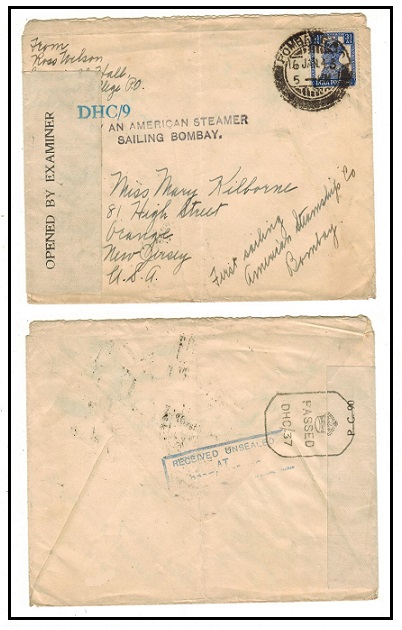 From
Ross Wilson
Hall
P.O.
OPENED BY EXAMINER
DHC/9
AN AMERICAN STEAMER
SAILING BOMBAY.
BOMBAY
5
Miss Mary Kilborne
81 High Street
Orange
New Jersey
U.S.A.
First sailing
American Steamship Co
Bombay.
P.C. 90
PASSED
DHC/37
RECEIVED UNSEALED
AT